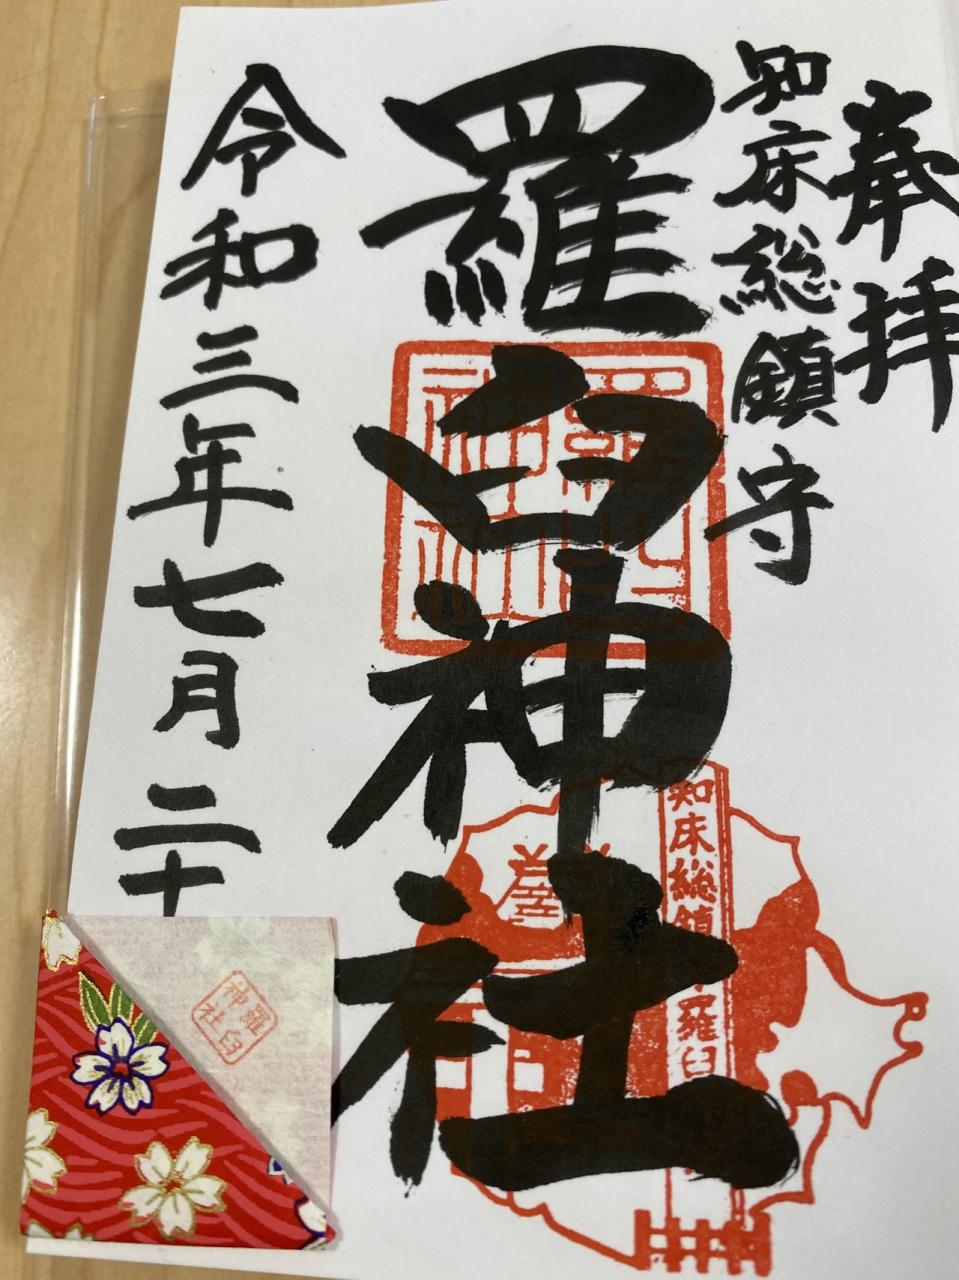 奉拝
知床総鎮守
羅臼神社
令和三年七月二十
羅臼
神社
知床総鎮
羅臼
羅臼
神社